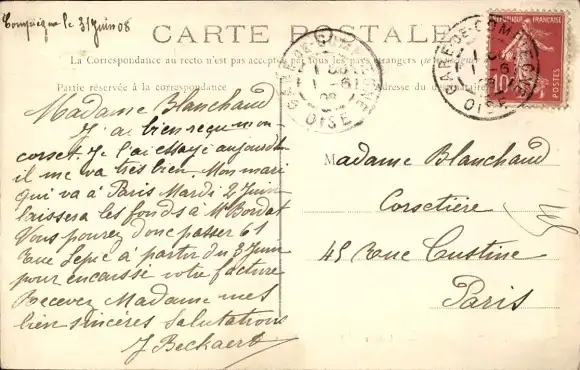 Compiègne le 31 Juin 08
CARTE POSTALE
La Correspondance au recto n'est pas acceptée par tous les pays étrangers
Partie réservée à la correspondance
Adresse du destinataire
GARE DE COMPIÈGNE
1 - 6
08
OISE
GARE DE COMPIÈGNE
1 - 6
OISE
REPUBLIQUE FRANÇAISE
10
POSTES
Madame Blanchaud
J'ai bien reçu mon
corset. Je l'ai essayé aujourd'h
il me va très bien. Mon mari
qui va à Paris Mardi 2 Juin
laissera les fonds à Mr Bordat
Vous pourez donc passer 61
Rue à partir du 3 Juin
pour encaissé votre facture
Recevez Madame mes
bien sincères salutations
J Beckaert
Madame Blanchaud
Corsetière
45 Rue Custine
Paris